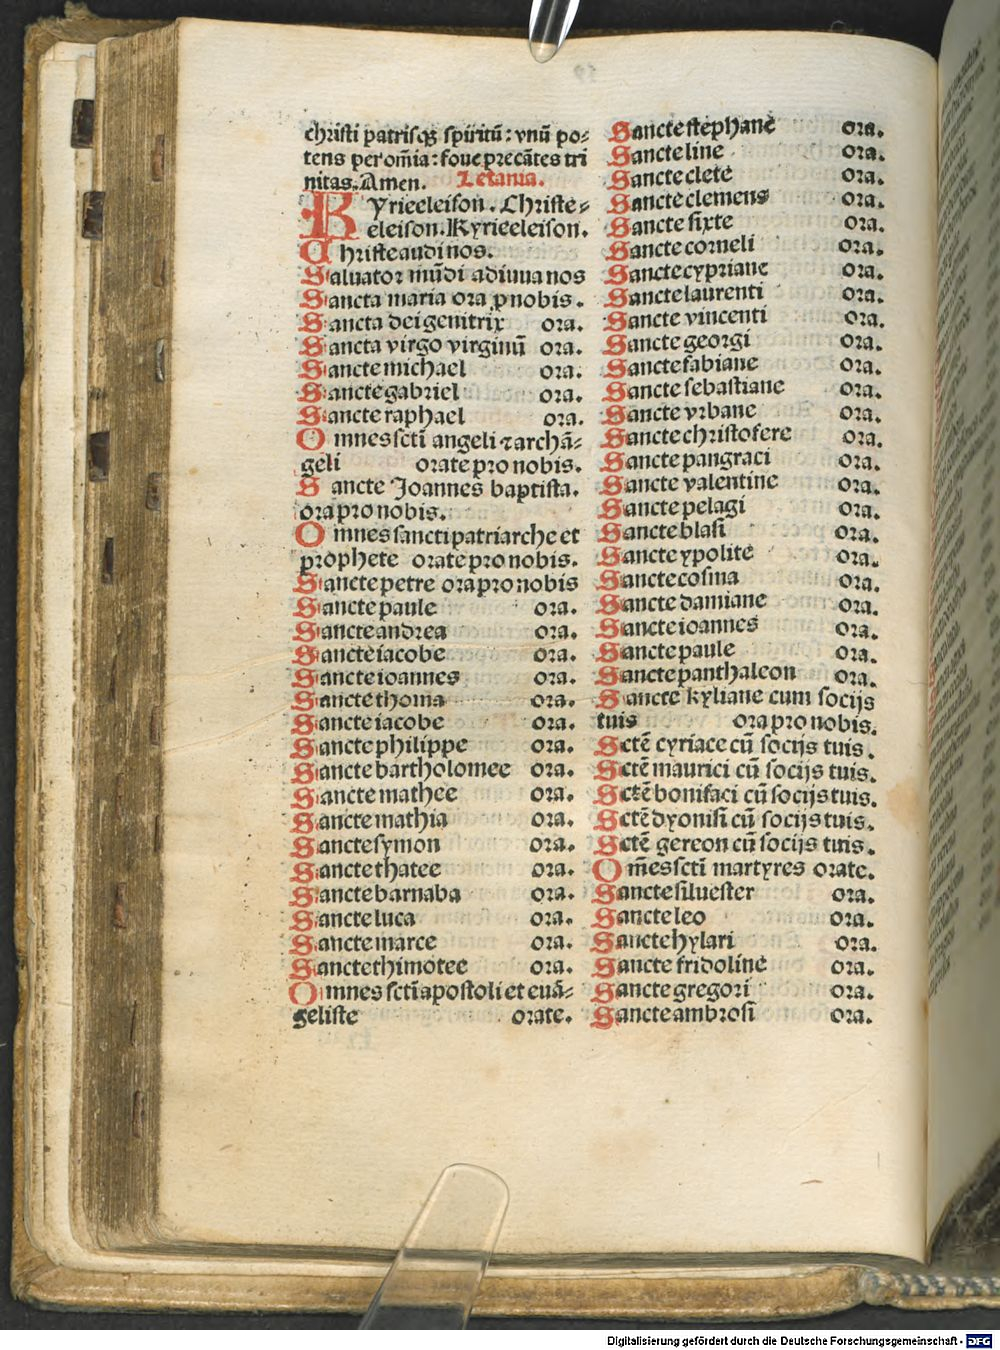 christi patrisqꝫ spiritū: vnū po-
tens per om̄ia: foue precātes tri
nitas. Amen. Letania.
Kyrieeleison. Christe-
eleison. Kyrieeleison.
Christe audi nos.
Saluator mūdi adiuua nos
Sancta maria ora ꝓ nobis.
Sancta dei genitrix ora.
Sancta virgo virginū ora.
Sancte michael ora.
Sancte gabriel ora.
Sancte raphael ora.
Omnes scti angeli ⁊ archā-
geli orate pro nobis.
Sancte Joannes baptista.
ora pro nobis.
Omnes sancti patriarche et
prophete orate pro nobis.
Sancte petre ora pro nobis
Sancte paule ora.
Sancte andrea ora.
Sancte iacobe ora.
Sancte ioannes ora.
Sancte thoma ora.
Sancte iacobe ora.
Sancte philippe ora.
Sancte bartholomee ora.
Sancte mathee ora.
Sancte mathia ora.
Sancte symon ora.
Sancte thatee ora.
Sancte barnaba ora.
Sancte luca ora.
Sancte marce ora.
Sancte thimotee ora.
Omnes sctī apostoli et euā-
geliste orate.
Sancte stephane ora.
Sancte line ora.
Sancte clete ora.
Sancte clemens ora.
Sancte sixte ora.
Sancte corneli ora.
Sancte cypriane ora.
Sancte laurenti ora.
Sancte vincenti ora.
Sancte georgi ora.
Sancte fabiane ora.
Sancte sebastiane ora.
Sancte vrbane ora.
Sancte christofere ora.
Sancte pangraci ora.
Sancte valentine ora.
Sancte pelagi ora.
Sancte blasi ora.
Sancte ypolite ora.
Sancte cosma ora.
Sancte damiane ora.
Sancte ioannes ora.
Sancte paule ora.
Sancte panthaleon ora.
Sancte kyliane cum socijs
tuis ora pro nobis.
Sctē cyriace cū socijs tuis.
Sctē maurici cū socijs tuis.
Sctē bonifaci cū socijs tuis.
Sctē dyonisi cū socijs tuis.
Sctē gereon cū socijs tuis.
Om̄es sctī martyres orate.
Sancte siluester ora.
Sancte leo ora.
Sancte hylari ora.
Sancte fridoline ora.
Sancte gregori ora.
Sancte ambrosi ora.
Digitalisierung gefördert durch die Deutsche Forschungsgemeinschaft - DFG